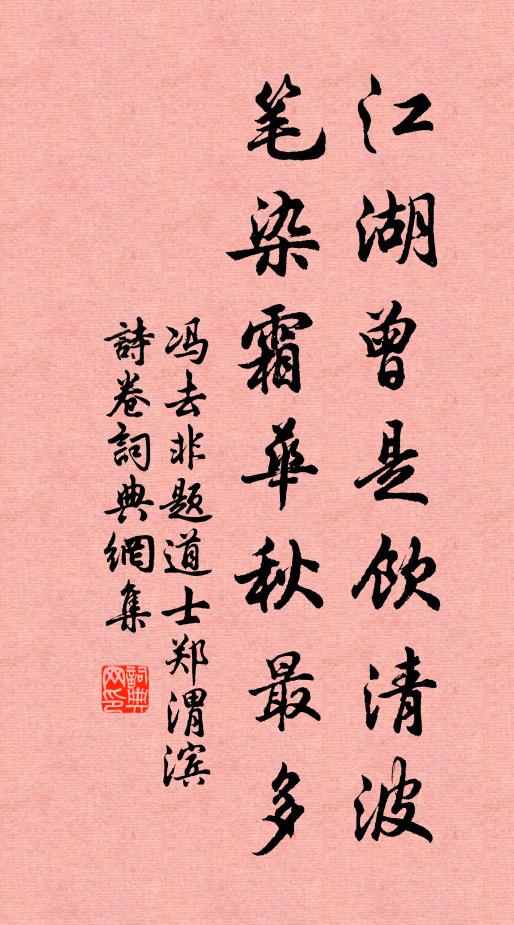 江湖曾是饮清波
笔染霜华秋最多
冯去非题道士郑渭滨
詩卷詞典網集
詞典网印